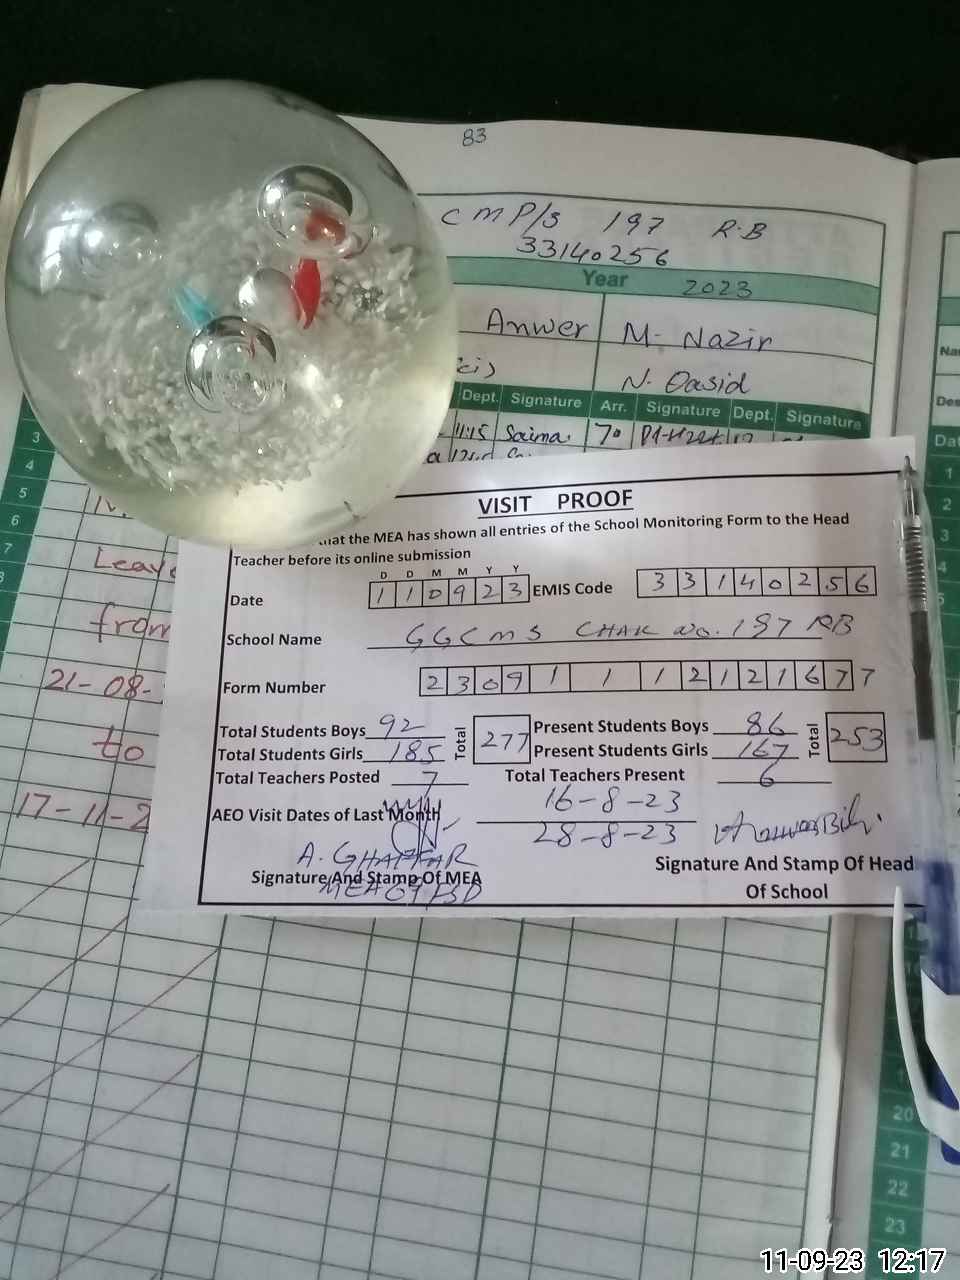 83
CMP/S 197 R.B
33140256
Year 2023
Anwer M- Nazir
Dept. Signature Arr. Signature Dept. Signature
11:15 Saima
3
4
5
6
7
Leave
from
21-08-
to
17-11-2
VISIT PROOF
at the MEA has shown all entries of the School Monitoring Form to the Head
Teacher before its online submission
D D M M Y Y
Date 1 1 0 9 2 3 EMIS Code 3 3 1 4 0 2 5 6
School Name GGCMS CHAK No. 197 RB
Form Number 2 3 0 9 1 1 1 2 1 2 1 6 7 7
Total Students Boys 92 Total 277 Present Students Boys 86 Total 253
Total Students Girls 185 Present Students Girls 167
Total Teachers Posted 7 Total Teachers Present 6
AEO Visit Dates of Last Month 16-8-23
28-8-23
A. GHAFFAR
Signature And Stamp Of MEA
Signature And Stamp Of Head
Of School
Dat
1
2
3
4
5
20
21
22
23
11-09-23 12:17